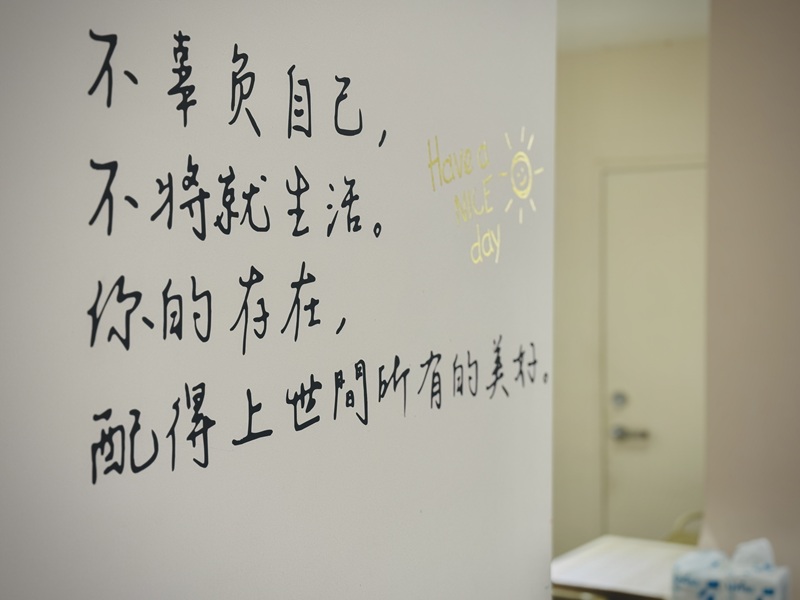 不辜负自己,
不將就生活。
你的存在,
配得上世間所有的美好。
Have a
NICE
day